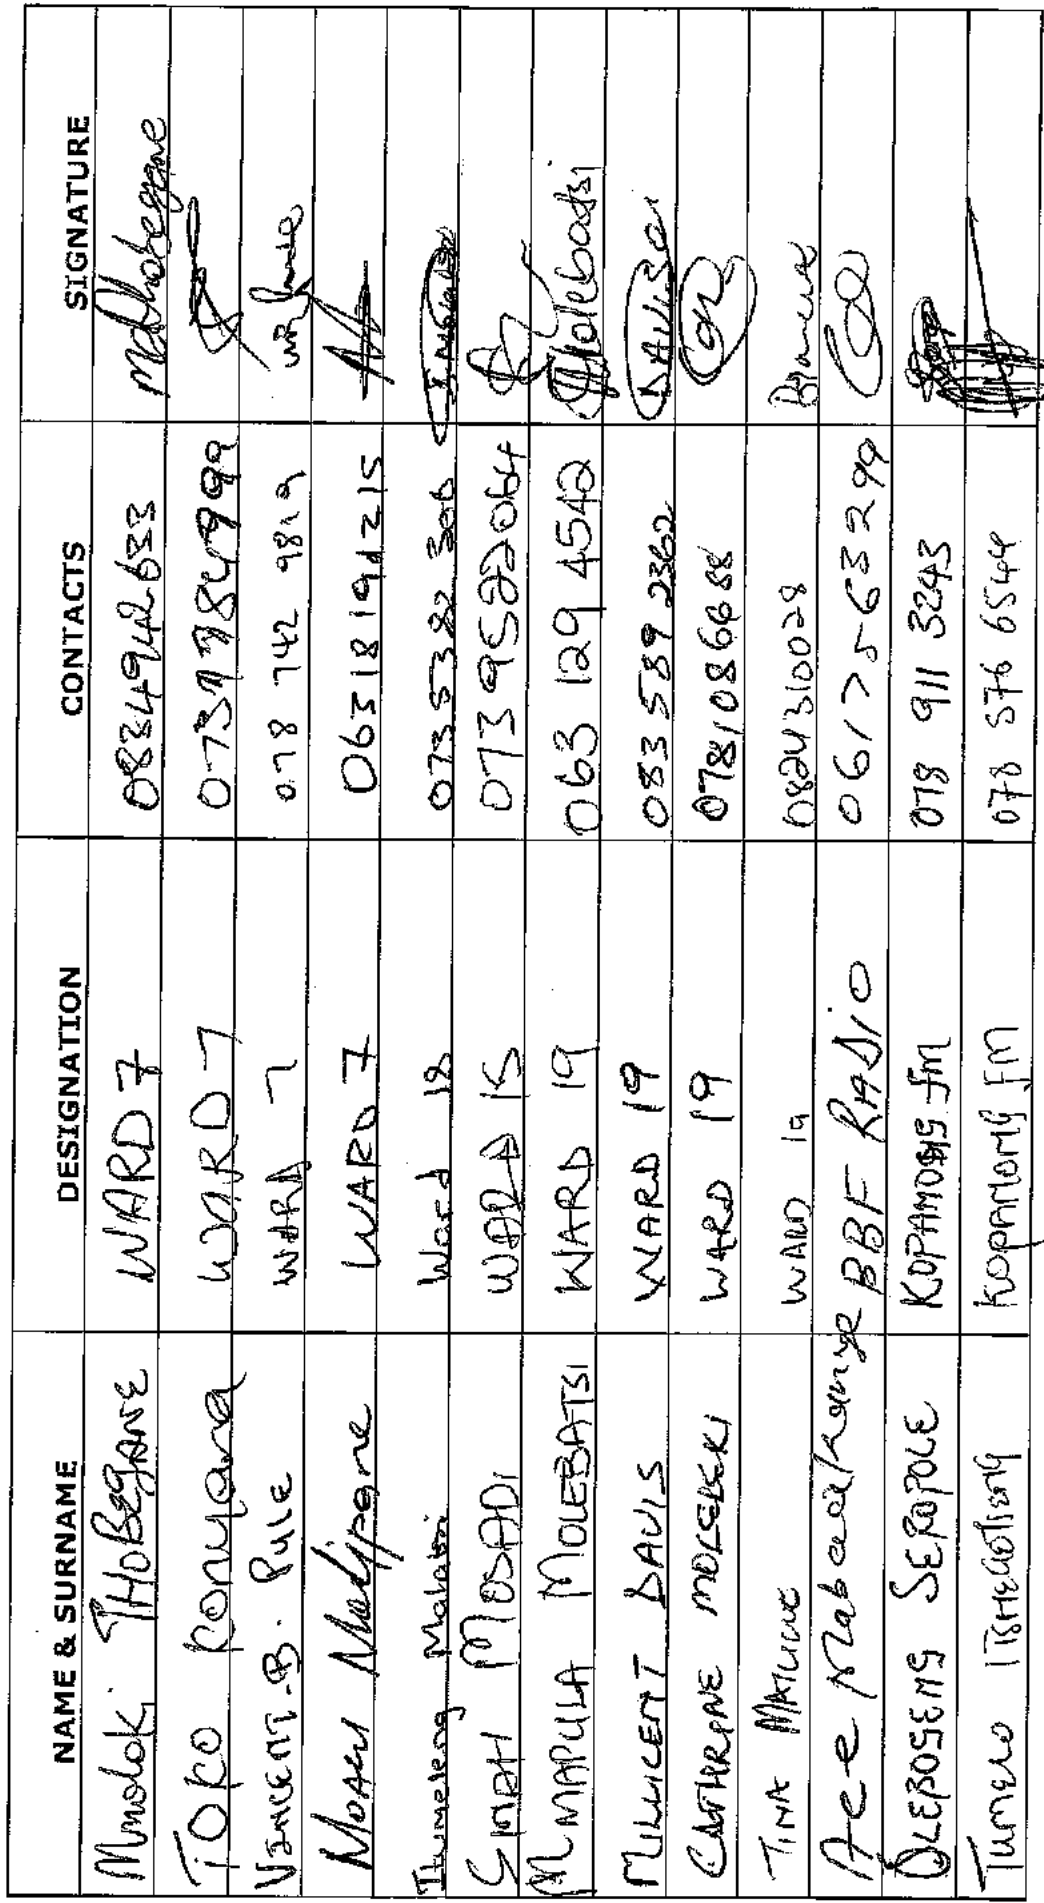 NAME & SURNAME DESIGNATION CONTACTS SIGNATURE
Mmoloki THOBEGANE WARD 7 0834942633
TIOKO Konyana WARD 7
VINCENT-B. PULE WARD 7 078 742 9819
WARD 7 06318191215
Itumeleng Ward 18 073 5382 306
MOSADI WARD 18 0739522064
MMAPULA MOLEBATSI WARD 19 063 129 4542 Molebatsi
MILLICENT DAVIS WARD 19 083 589 2362 DAVIS
CATHRINE MOLEBEKI WARD 19 0781086688
TINA WARD 19 0824310028
Ace Mabaalkanye BBF RADIO 061 7556 3299
OLEBOGENG SEROPOLE KOPANONG FM 078 911 3243
TUMELO ITSHEGETSENG KOPANONG FM 078 576 6544